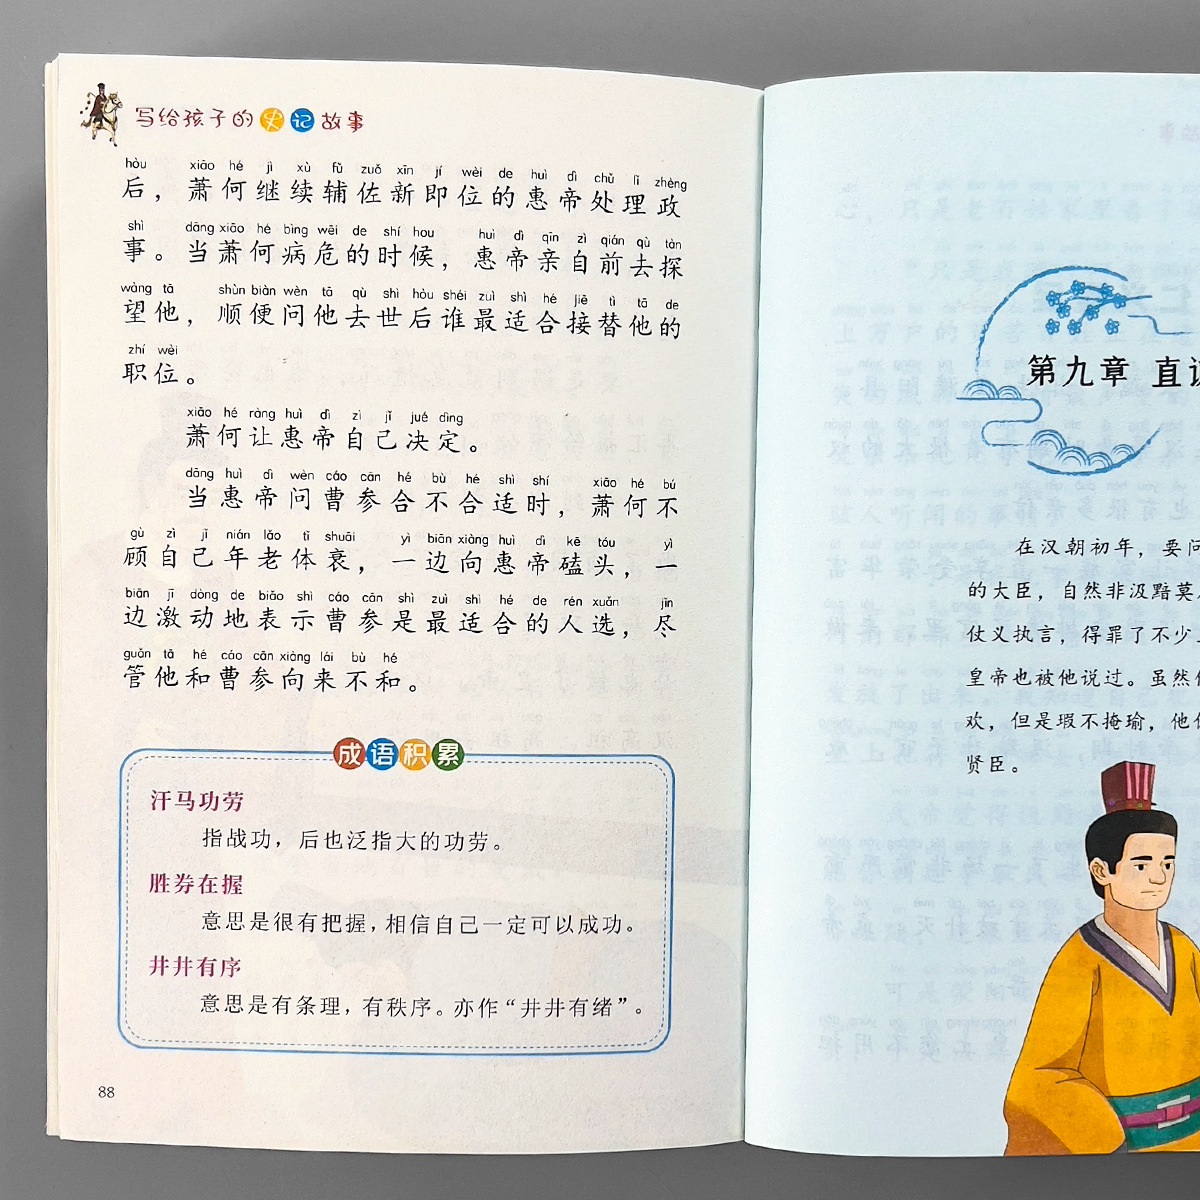 写给孩子的史记故事
hòu xiāo hé jì xù fǔ zuǒ xīn jí wèi de huì dì chǔ lǐ zhèng
后，萧何继续辅佐新即位的惠帝处理政
shì dāng xiāo hé bìng wēi de shí hou huì dì qīn zì qián qù tàn
事。当萧何病危的时候，惠帝亲自前去探
wàng tā shùn biàn wèn tā qù shì hòu shéi zuì shì hé jiē tì tā de
望他，顺便问他去世后谁最适合接替他的
zhí wèi
职位。
xiāo hé ràng huì dì zì jǐ jué dìng
萧何让惠帝自己决定。
dāng huì dì wèn cáo cān hé bù hé shì shí xiāo hé bú
当惠帝问曹参合不合适时，萧何不
gù zì jǐ nián lǎo tǐ shuāi yì biān xiàng huì dì kē tóu yì
顾自己年老体衰，一边向惠帝磕头，一
biān jī dòng de biǎo shì cáo cān shì zuì shì hé de rén xuǎn jǐn
边激动地表示曹参是最适合的人选，尽
guǎn tā hé cáo cān xiàng lái bù hé
管他和曹参向来不和。
成语积累
汗马功劳
指战功，后也泛指大的功劳。
胜券在握
意思是很有把握，相信自己一定可以成功。
井井有序
意思是有条理，有秩序。亦作“井井有绪”。
88
第九章 直
在汉朝初年，要问
的大臣，自然非汲黯莫
仗义执言，得罪了不少
皇帝也被他说过。虽然
欢，但是瑕不掩瑜，他
贤臣。